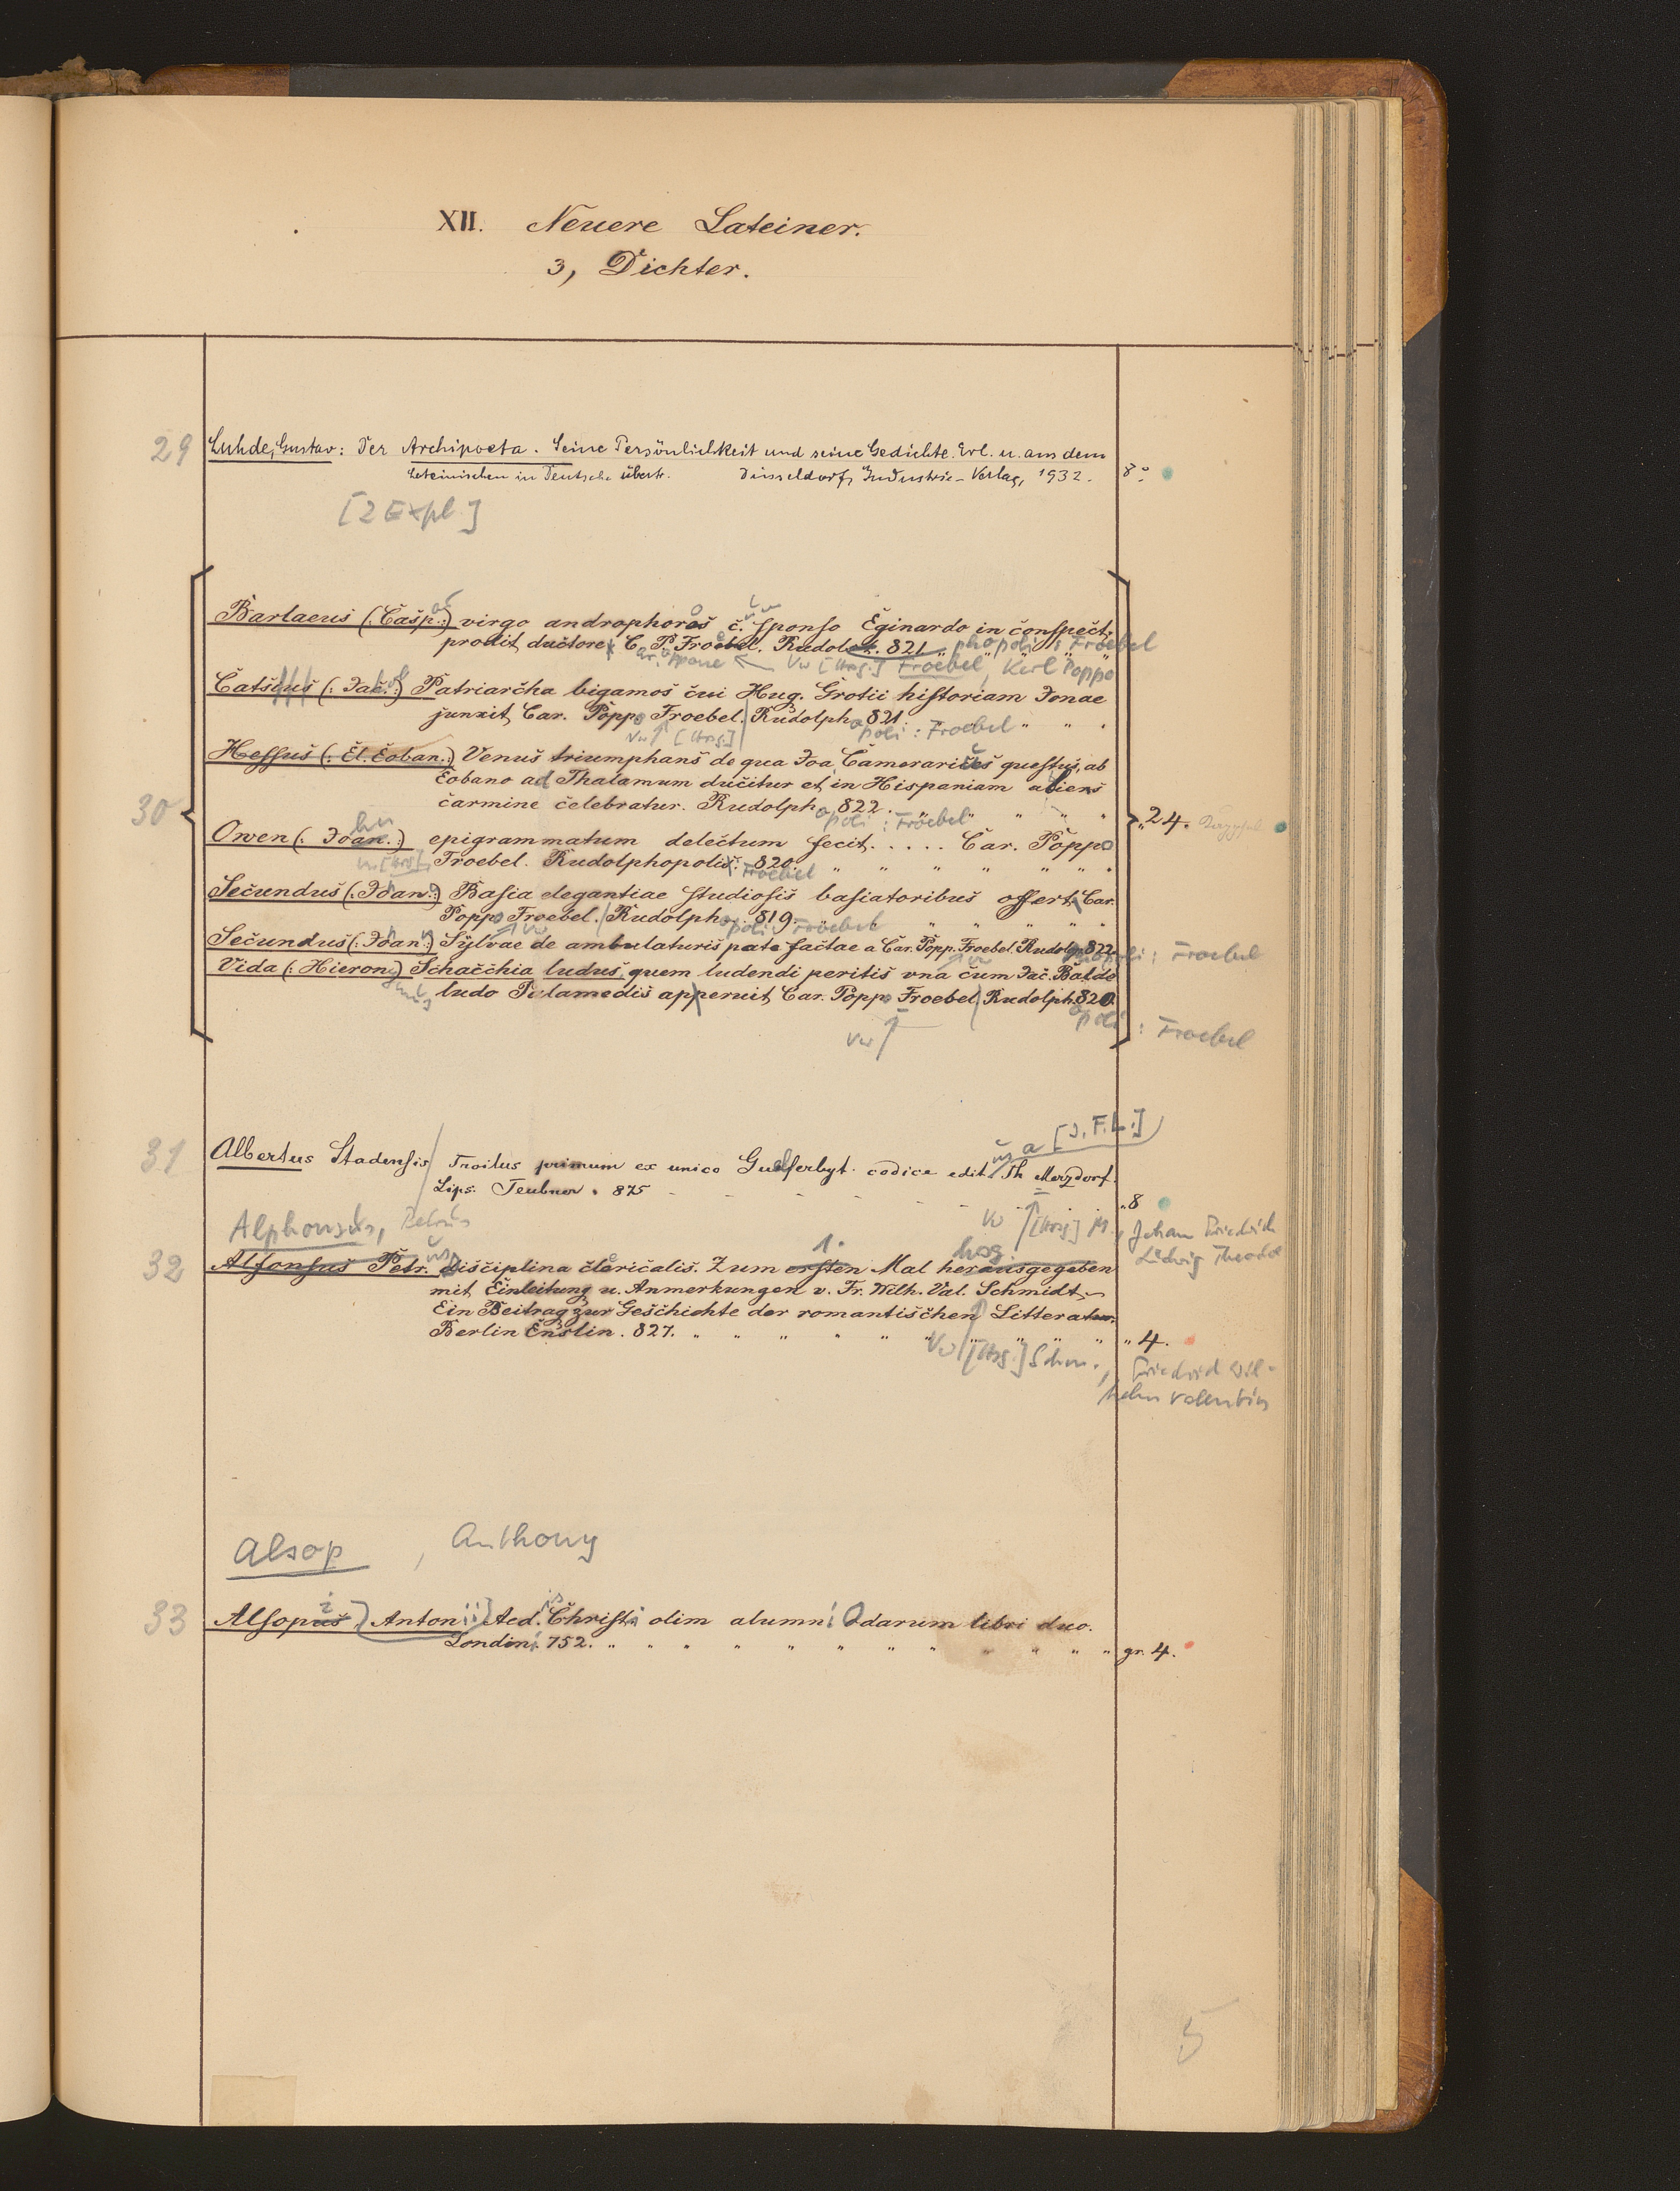 XII. Neuere Lateiner.
3, Dichter.
29 Luhde, Gustav: Der Archipoeta. Seine Persönlichkeit und seine Gedichte. Erl. u. aus dem
Lateinischen in Deutsche übertr. Düsseldorf, Industrie-Verlag, 1932. 8°
[2 Expl.]
Barlaeus (: Casp. :) virgo androphoros c. sponso Eginardo in conspect.
prodit, ductore C. P. Froebel. Rudolst. 821. phopoli : Froebel
Vw [Hrsg.] Froebel, Karl Poppo
Catsius (: Jac. :) Patriarcha bigamos cui Hug. Grotii historiam Jonae
junxit, Car. Popp. Froebel. Rudolph. 821. opoli : Froebel
Vw [Hrsg.]
Hessus (: El. Eoban. :) Venus triumphans de qua Joa. Camerarii questus, ab
Eobano ad Thalamum ducitur et in Hispaniam abiens
carmine celebratur. Rudolph. 822. opoli : Froebel
30 „ 24.
Owen (: Joan. :) epigrammatum delectum fecit. . . . . Car. Popp.
Vw [Hrsg.] Froebel. Rudolphopolis. 820. Froebel
Secundus (: Joan. :) Basia elegantiae studiosis basiatoribus offert, Car.
Popp. Froebel. Rudolph. 819. opoli : Froebel
Vw
Secundus (: Joan. :) Sylvae de ambulaturis patefactae a Car. Popp. Froebel. Rudolph. 822. opoli : Froebel
Vida (: Hieron. :) Schacchia ludus, quem ludendi peritis una cum Jac. Balde
ludo Palamedis apperuit, Car. Popp. Froebel. Rudolph. 820. opoli : Froebel
Vw
[J. F. L.]
31 Albertus Stadensis Troilus primum ex unico Guelferbyt. codice edit. Th. Merzdorf.
Lips. Teubner. 875 „ 8
Vw [Hrsg.] M., Johann Friedrich
Ludwig Theodor
Alphonsus, Petrus
32 Alfonsus Petr. disciplina clericalis. Zum ersten Mal herausgegeben
1. hrsg.
mit Einleitung u. Anmerkungen v. Fr. Wilh. Val. Schmidt.
Ein Beitrag zur Geschichte der romantischen Litteratur.
Berlin Enslin. 827. „ 4.
Vw [Hrsg.] Schm., Friedrich Wil-
helm Valentin
Alsop, Anthony
33 Alsopus Antonii Aed. Christi olim alumni Odarum libri duo.
Londini 752. gr. 4.
5